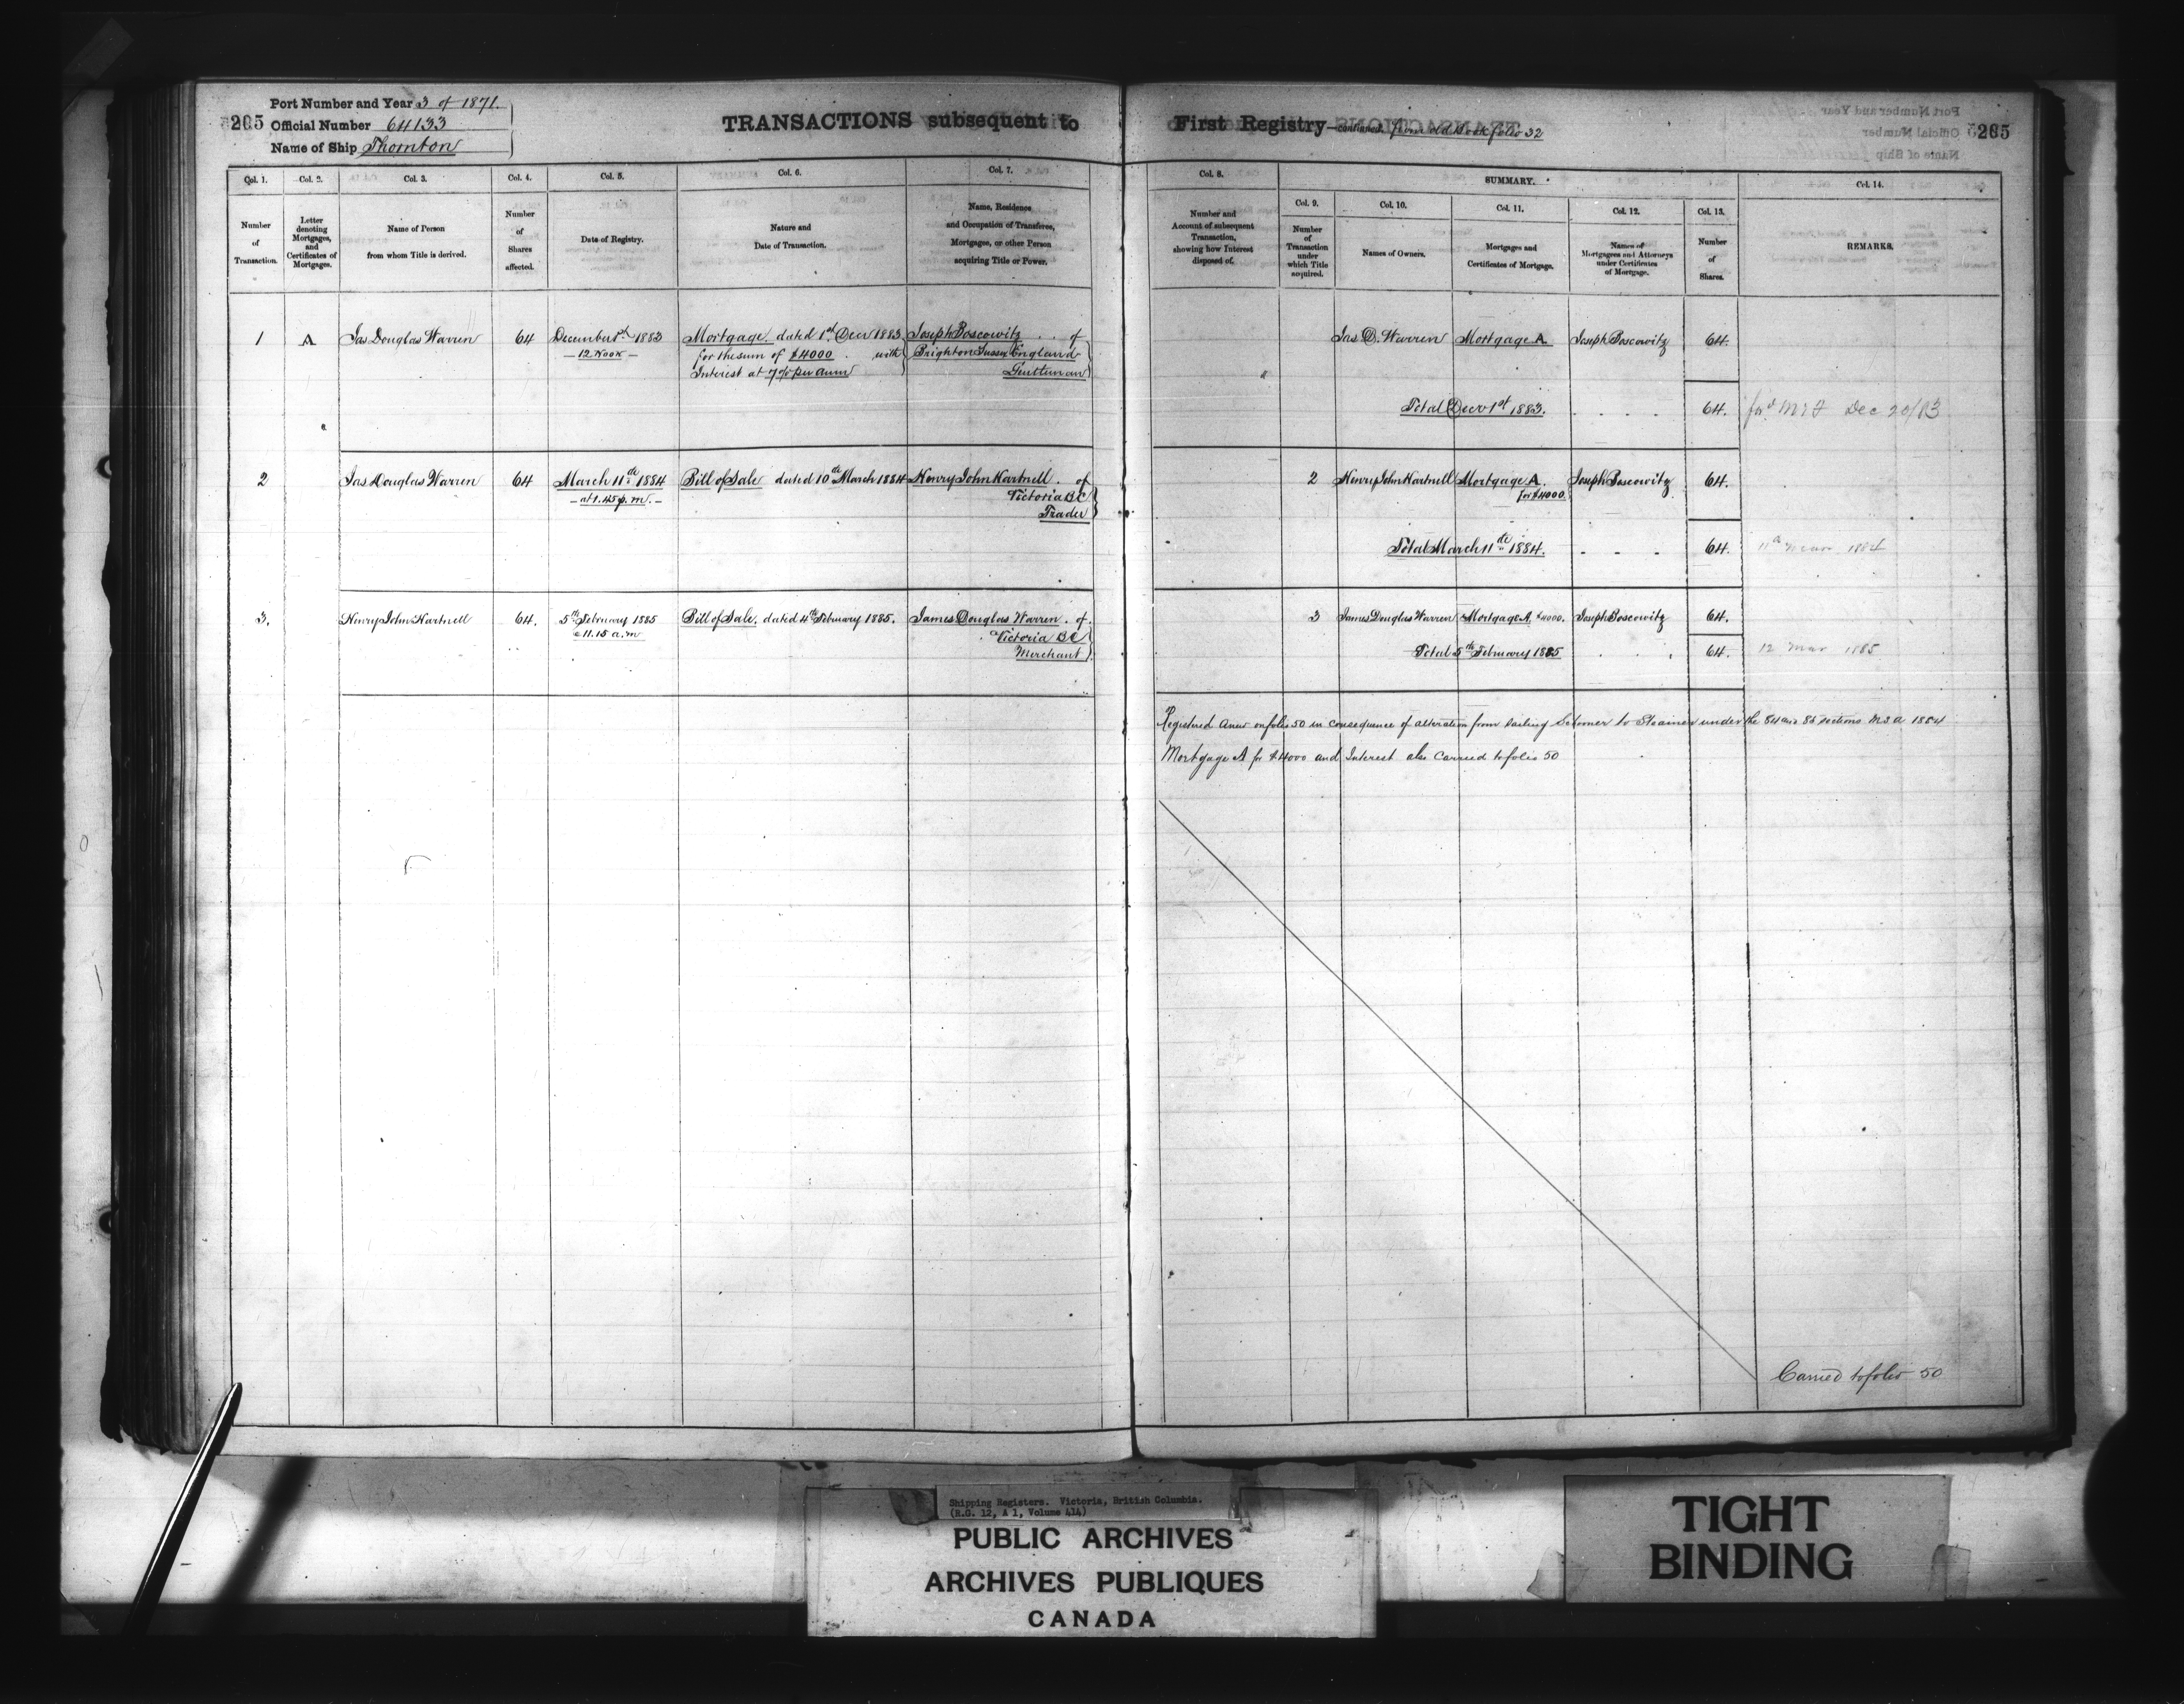 Port Number and Year 3 of 1871.
205 Official Number 64133
Name of Ship Thornton
TRANSACTIONS subsequent to
Col. 1.
Col. 2.
Col. 3.
Col. 4.
Col. 5.
Col. 6.
Col. 7.
Number
of
Transaction.
Letter
denoting
Mortgages,
and
Certificates of
Mortgages.
Name of Person
from whom Title is derived.
Number
of
Shares
affected.
Date of Registry.
Nature and
Date of Transaction.
Name, Residence
and Occupation of Transferee,
Mortgagee, or other Person
acquiring Title or Power.
1 A Jas Douglas Warren 64 December 1st 1883 Mortgage dated 1st Decr 1883 Joseph Boscowitz of
12 Noon for the sum of $4000 with Brighton Sussex England
Interest at 7% per anm Gentleman
2 Jas Douglas Warren 64 March 11th 1884 Bill of Sale dated 10th March 1884 Henry John Hartnell of
at 1.45 p.m. Victoria BC
Trader
3. Henry John Hartnell 64. 5th February 1885 Bill of Sale. dated 4th February 1885. James Douglas Warren. of
11.15 a.m Victoria BC
Merchant
First Registry—continued. from old Book folio 32
205
Col. 8.
SUMMARY.
Col. 14.
Col. 9.
Col. 10.
Col. 11.
Col. 12.
Col. 13.
Number and
Account of subsequent
Transaction,
showing how Interest
disposed of.
Number
of
Transaction
under
which Title
acquired.
Names of Owners.
Mortgages and
Certificates of Mortgage.
Names of
Mortgagees and Attorneys
under Certificates
of Mortgage.
Number
of
Shares.
REMARKS.
Jas D. Warren Mortgage A Joseph Boscowitz 64.
Total Decr 1st 1883. 64. Dec 20/83
2 Henry John Hartnell Mortgage A. Joseph Boscowitz 64.
for $4000
Total March 11th 1884. 64. 1884
3 James Douglas Warren Mortgage A $4000. Joseph Boscowitz 64.
Total 5th February 1885 64. 12 Mar 1885
Registered Anew on folio 50 in consequence of alteration from Sailing Schooner to Steamer under the sections MSA
Mortgage A for $4000 and Interest also Carried to folio 50
Carried to folio 50
Shipping Registers. Victoria, British Columbia.
(R.G. 12, A 1, Volume 414)
PUBLIC ARCHIVES
ARCHIVES PUBLIQUES
CANADA
TIGHT
BINDING